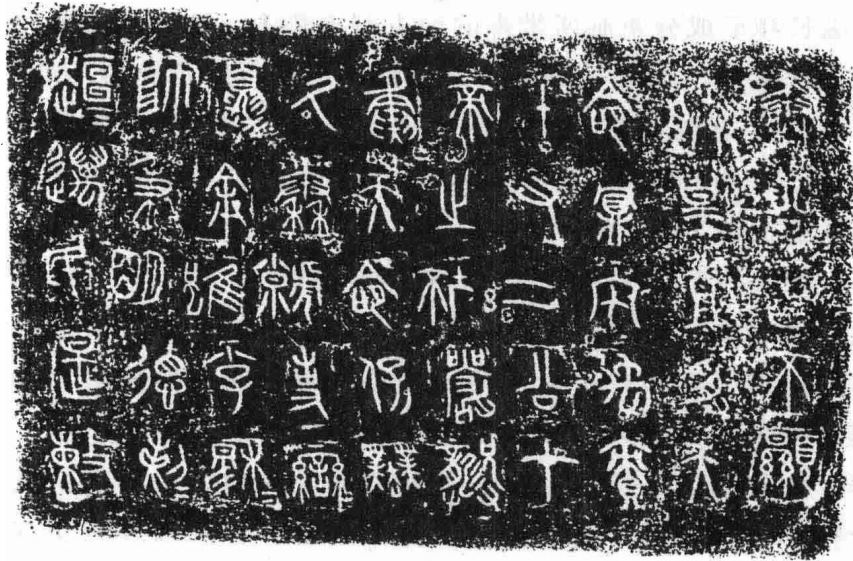 秦公曰不顯
朕皇且受天
命鼏宅禹賷
十又二公才
帝之坏嚴龏
夤天命保業
氒秦虩事䜌
夏余雖小子穆=
帥秉明德剌=
趄=邁民是敕